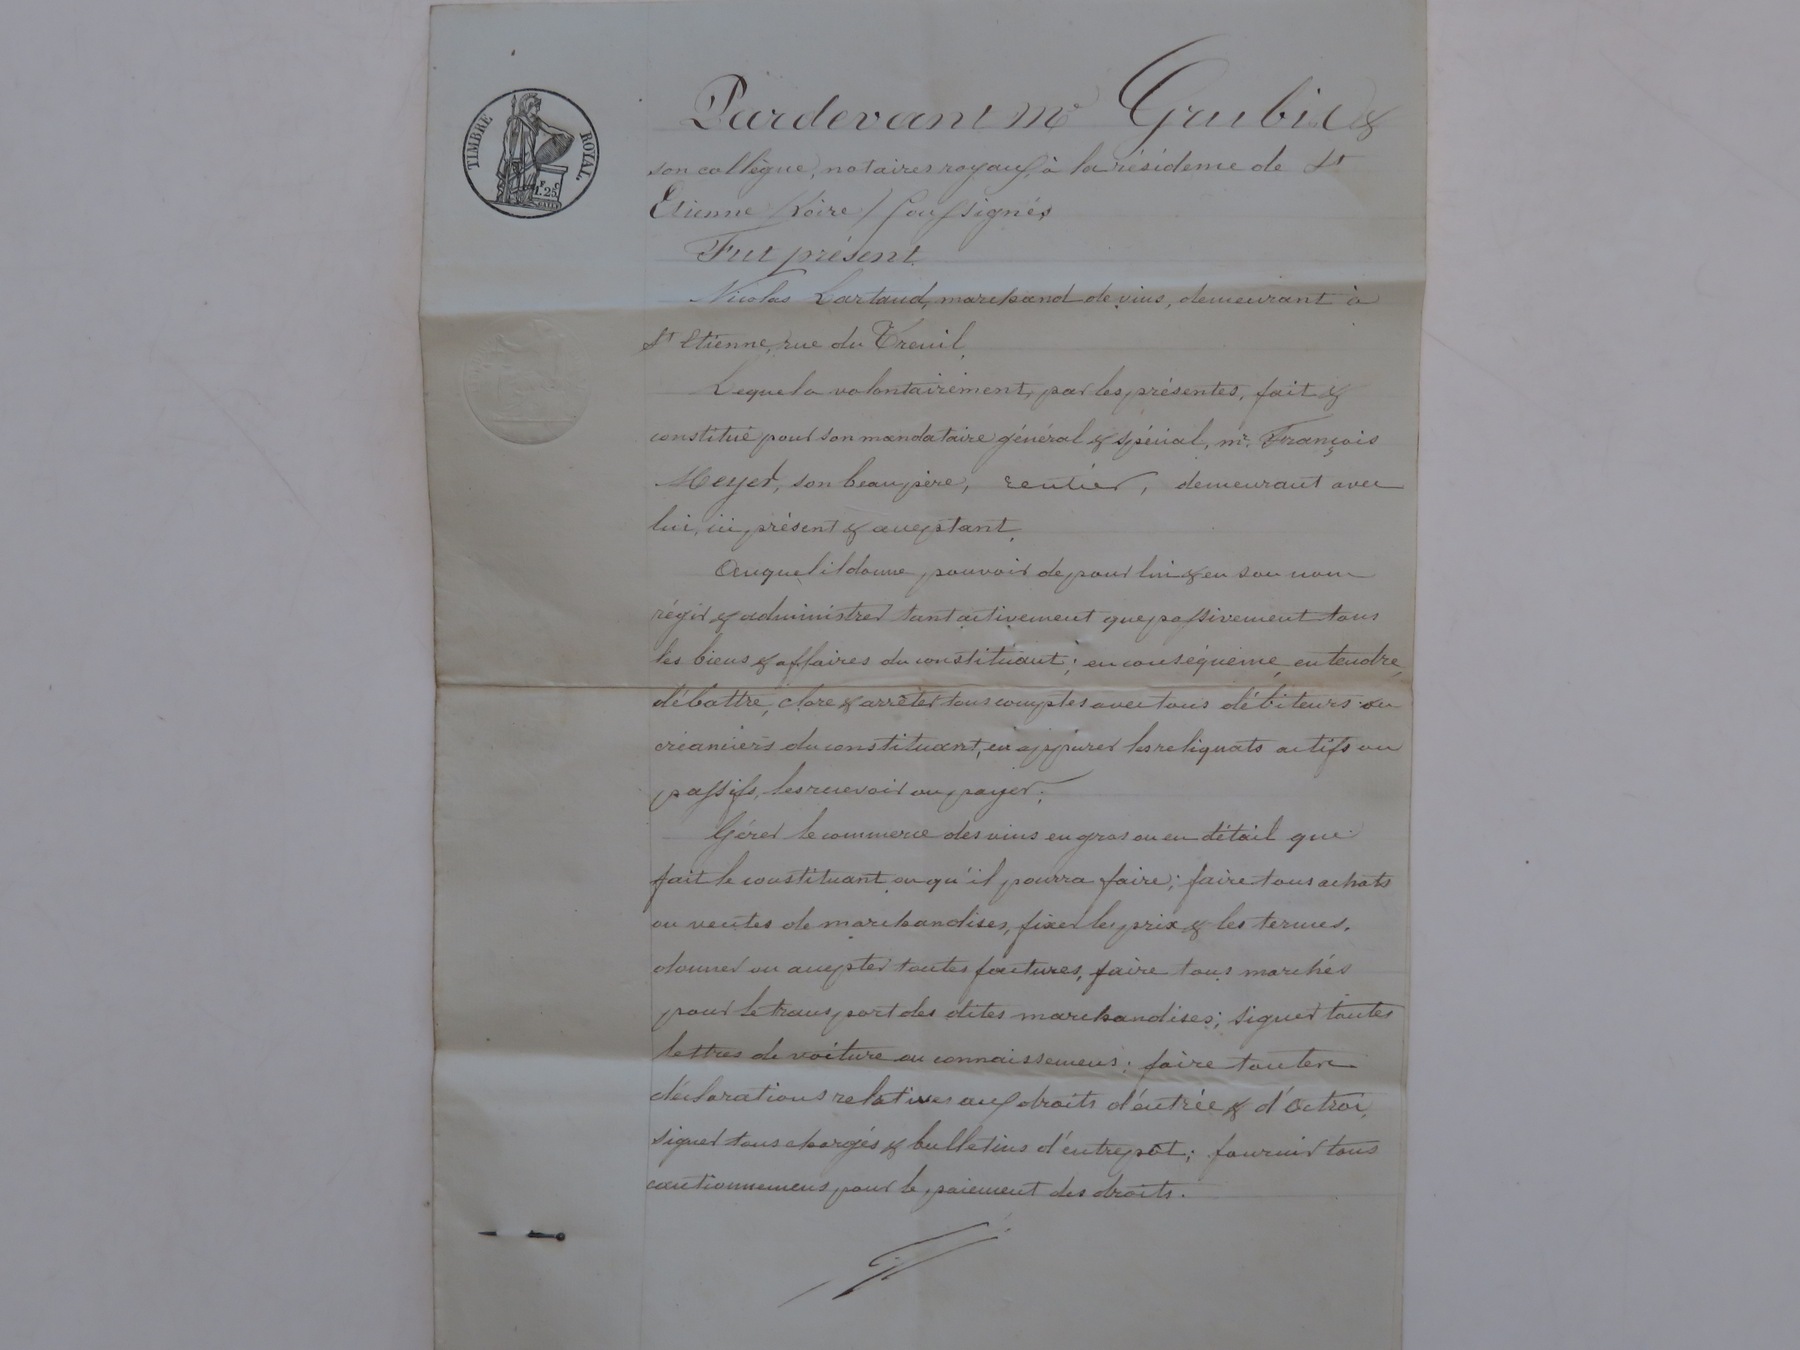 TIMBRE ROYAL.
F. C.
1.25
Pardevant Me Grubis &
son collègue, notaires royaux, à la résidence de St
Etienne (Loire) soussignés
Fut présent
Nicolas Lartaud, marchand de vins, demeurant à
St Etienne, rue du Treuil,
Lequel a volontairement, par les présentes, fait &
constitué pour son mandataire général & spécial, mr. François
Meyer, son beaupère, rentier, demeurant avec
lui, ici présent & acceptant,
Auquel il donne pouvoir de pour lui & en son nom
régir & administrer tant activement que passivement tous
les biens & affaires du constituant; en conséquence, entendre,
débattre, clore & arrêter tous comptes avec tous débiteurs ou
créanciers du constituant, en appurer les reliquats actifs ou
passifs, les recevoir ou payer;
Gérer le commerce des vins en gros ou en détail que
fait le constituant ou qu'il pourra faire; faire tous achats
ou ventes de marchandises, fixer les prix & les termes,
donner ou accepter toutes factures, faire tous marchés
pour le transport des dites marchandises; signer toutes
lettres de voiture ou connaissemens; faire toutes
déclarations relatives aux droits d'entrée & d'octroi,
signer tous chargés & bulletins d'entrepôt; fournir tous
cautionnemens pour le paiement des droits.